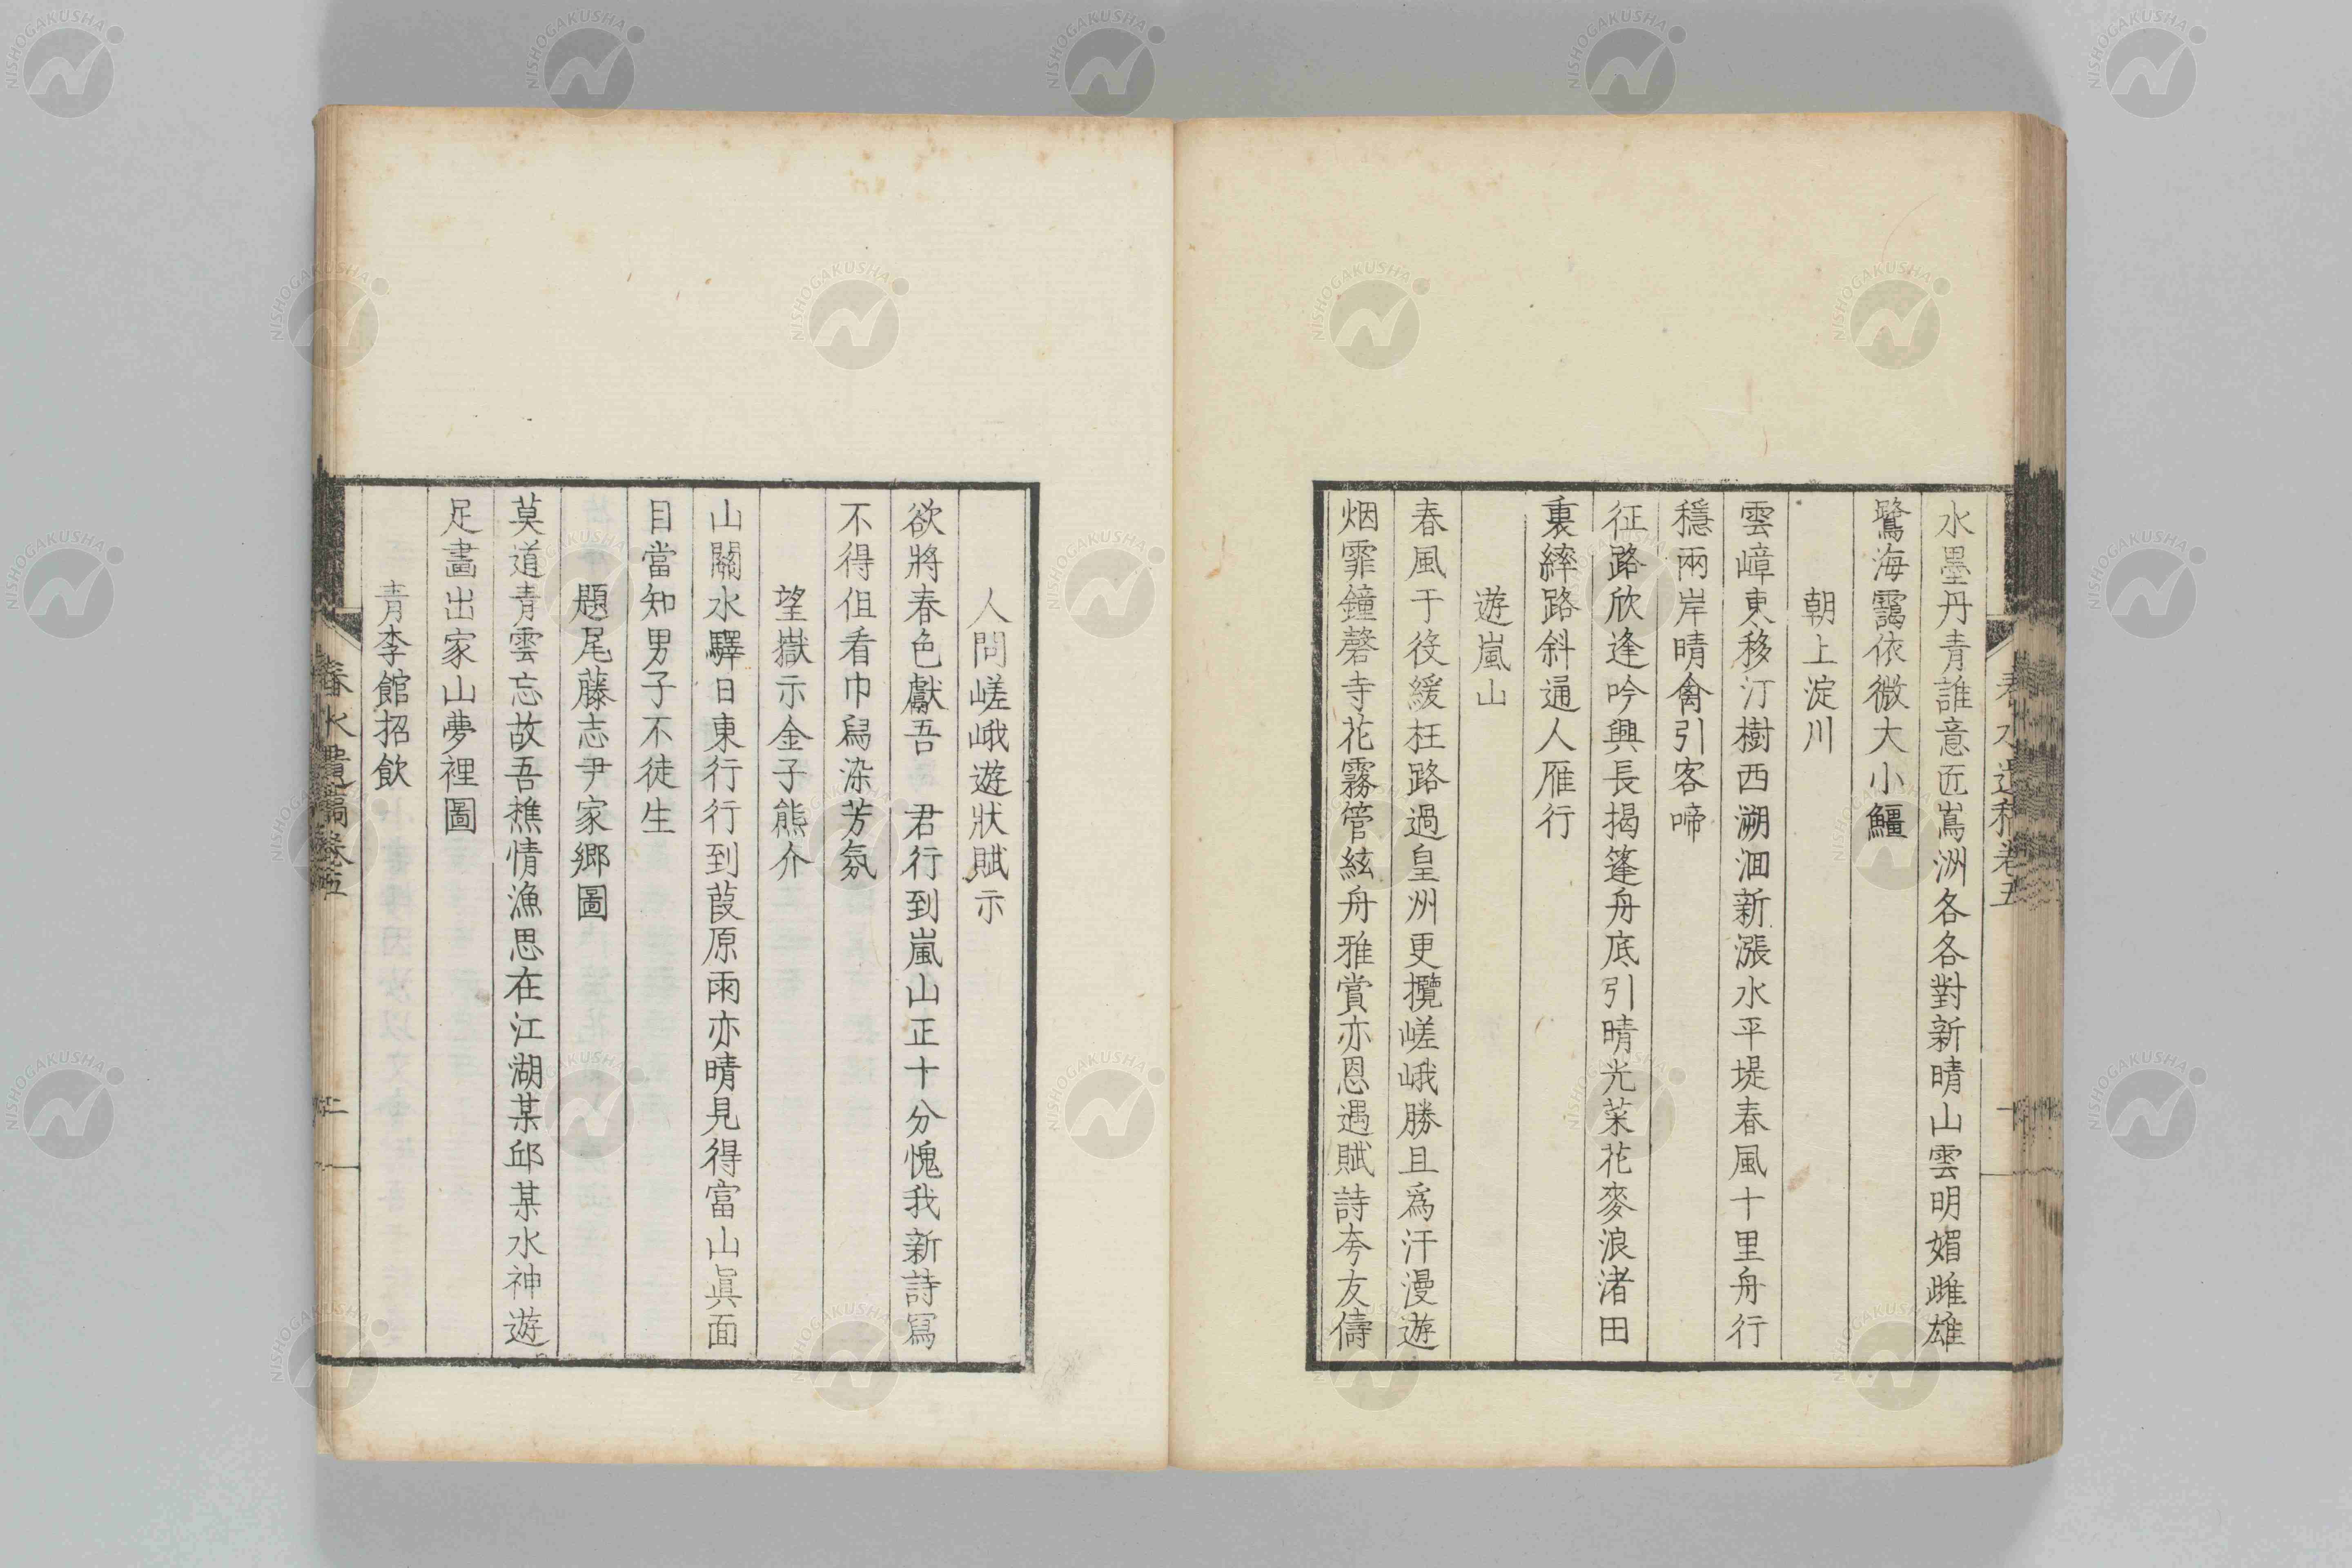 水墨丹青誰意匠嵩洲各各對新晴山雲明媚雌雄
鷺海靄依微大小鱷
朝上淀川
雲嶂東移汀樹西溯洄新漲水平堤春風十里舟行
穩兩岸晴禽引客啼
征路欣逢吟興長揭篷舟底引晴光菜花麥浪渚田
裏縴路斜通人雁行
遊嵐山
春風于役緩枉路過皇州更攬嵯峨勝且爲汗漫遊
烟霏鐘磬寺花霧管絃舟雅賞亦恩遇賦詩夸友儔
人問嵯峨遊狀賦示
欲將春色獻吾 君行到嵐山正十分愧我新詩寫
不得但看巾舄染芳氛
望嶽示金子熊介
山關水驛日東行行到葭原雨亦晴見得富山眞面
目當知男子不徒生
題尾藤志尹家鄉圖
莫道青雲忘故吾樵情漁思在江湖某邱某水神遊
足畵出家山夢裡圖
青李館招飲
春水遺稿卷五
NISHOGAKUSHA